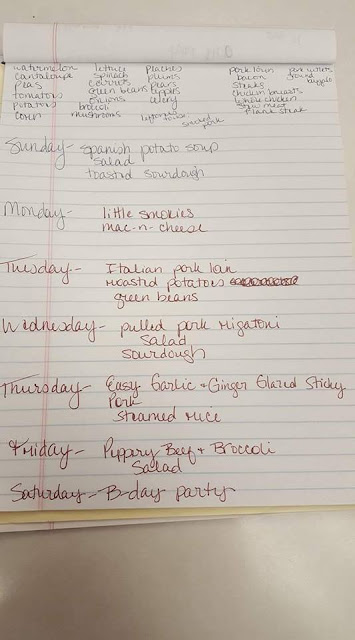 watermelon lettuce peaches pork loin pork cutlets
cantaloupe spinach plums bacon ground
peas carrots pears steaks
tomatoes green beans peppers chicken breasts
potatoes onions celery whole chicken
corn broccoli stew meat
mushrooms leftover smoked pork flank steak
Sunday- spanish potato soup
salad
toasted sourdough
Monday- little smokies
mac-n-cheese
Tuesday- Italian pork loin
roasted potatoes
green beans
Wednesday- pulled pork rigatoni
salad
sourdough
Thursday- Easy Garlic + Ginger Glazed Sticky
Pork
steamed rice
Friday- Peppery Beef + Broccoli
Salad
Saturday- B-day party